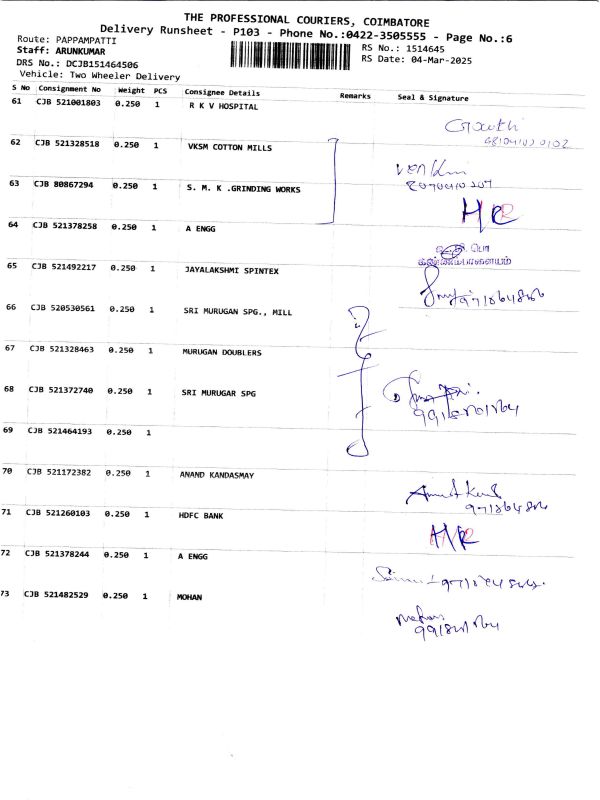 THE PROFESSIONAL COURIERS, COIMBATORE
Delivery Runsheet - P103 - Phone No.:0422-3505555 - Page No.:6
Route: PAPPAMPATTI
Staff: ARUNKUMAR
DRS No.: DCJB151464506
Vehicle: Two Wheeler Delivery
RS No.: 1514645
RS Date: 04-Mar-2025
S No Consignment No Weight PCS Consignee Details Remarks Seal & Signature
61 CJB 521001803 0.250 1 R K V HOSPITAL
62 CJB 521328518 0.250 1 VKSM COTTON MILLS
63 CJB 80867294 0.250 1 S. M. K .GRINDING WORKS
64 CJB 521378258 0.250 1 A ENGG
65 CJB 521492217 0.250 1 JAYALAKSHMI SPINTEX
66 CJB 520530561 0.250 1 SRI MURUGAN SPG., MILL
67 CJB 521328463 0.250 1 MURUGAN DOUBLERS
68 CJB 521372740 0.250 1 SRI MURUGAR SPG
69 CJB 521464193 0.250 1
70 CJB 521172382 0.250 1 ANAND KANDASMAY
71 CJB 521260103 0.250 1 HDFC BANK
72 CJB 521378244 0.250 1 A ENGG
73 CJB 521482529 0.250 1 MOHAN